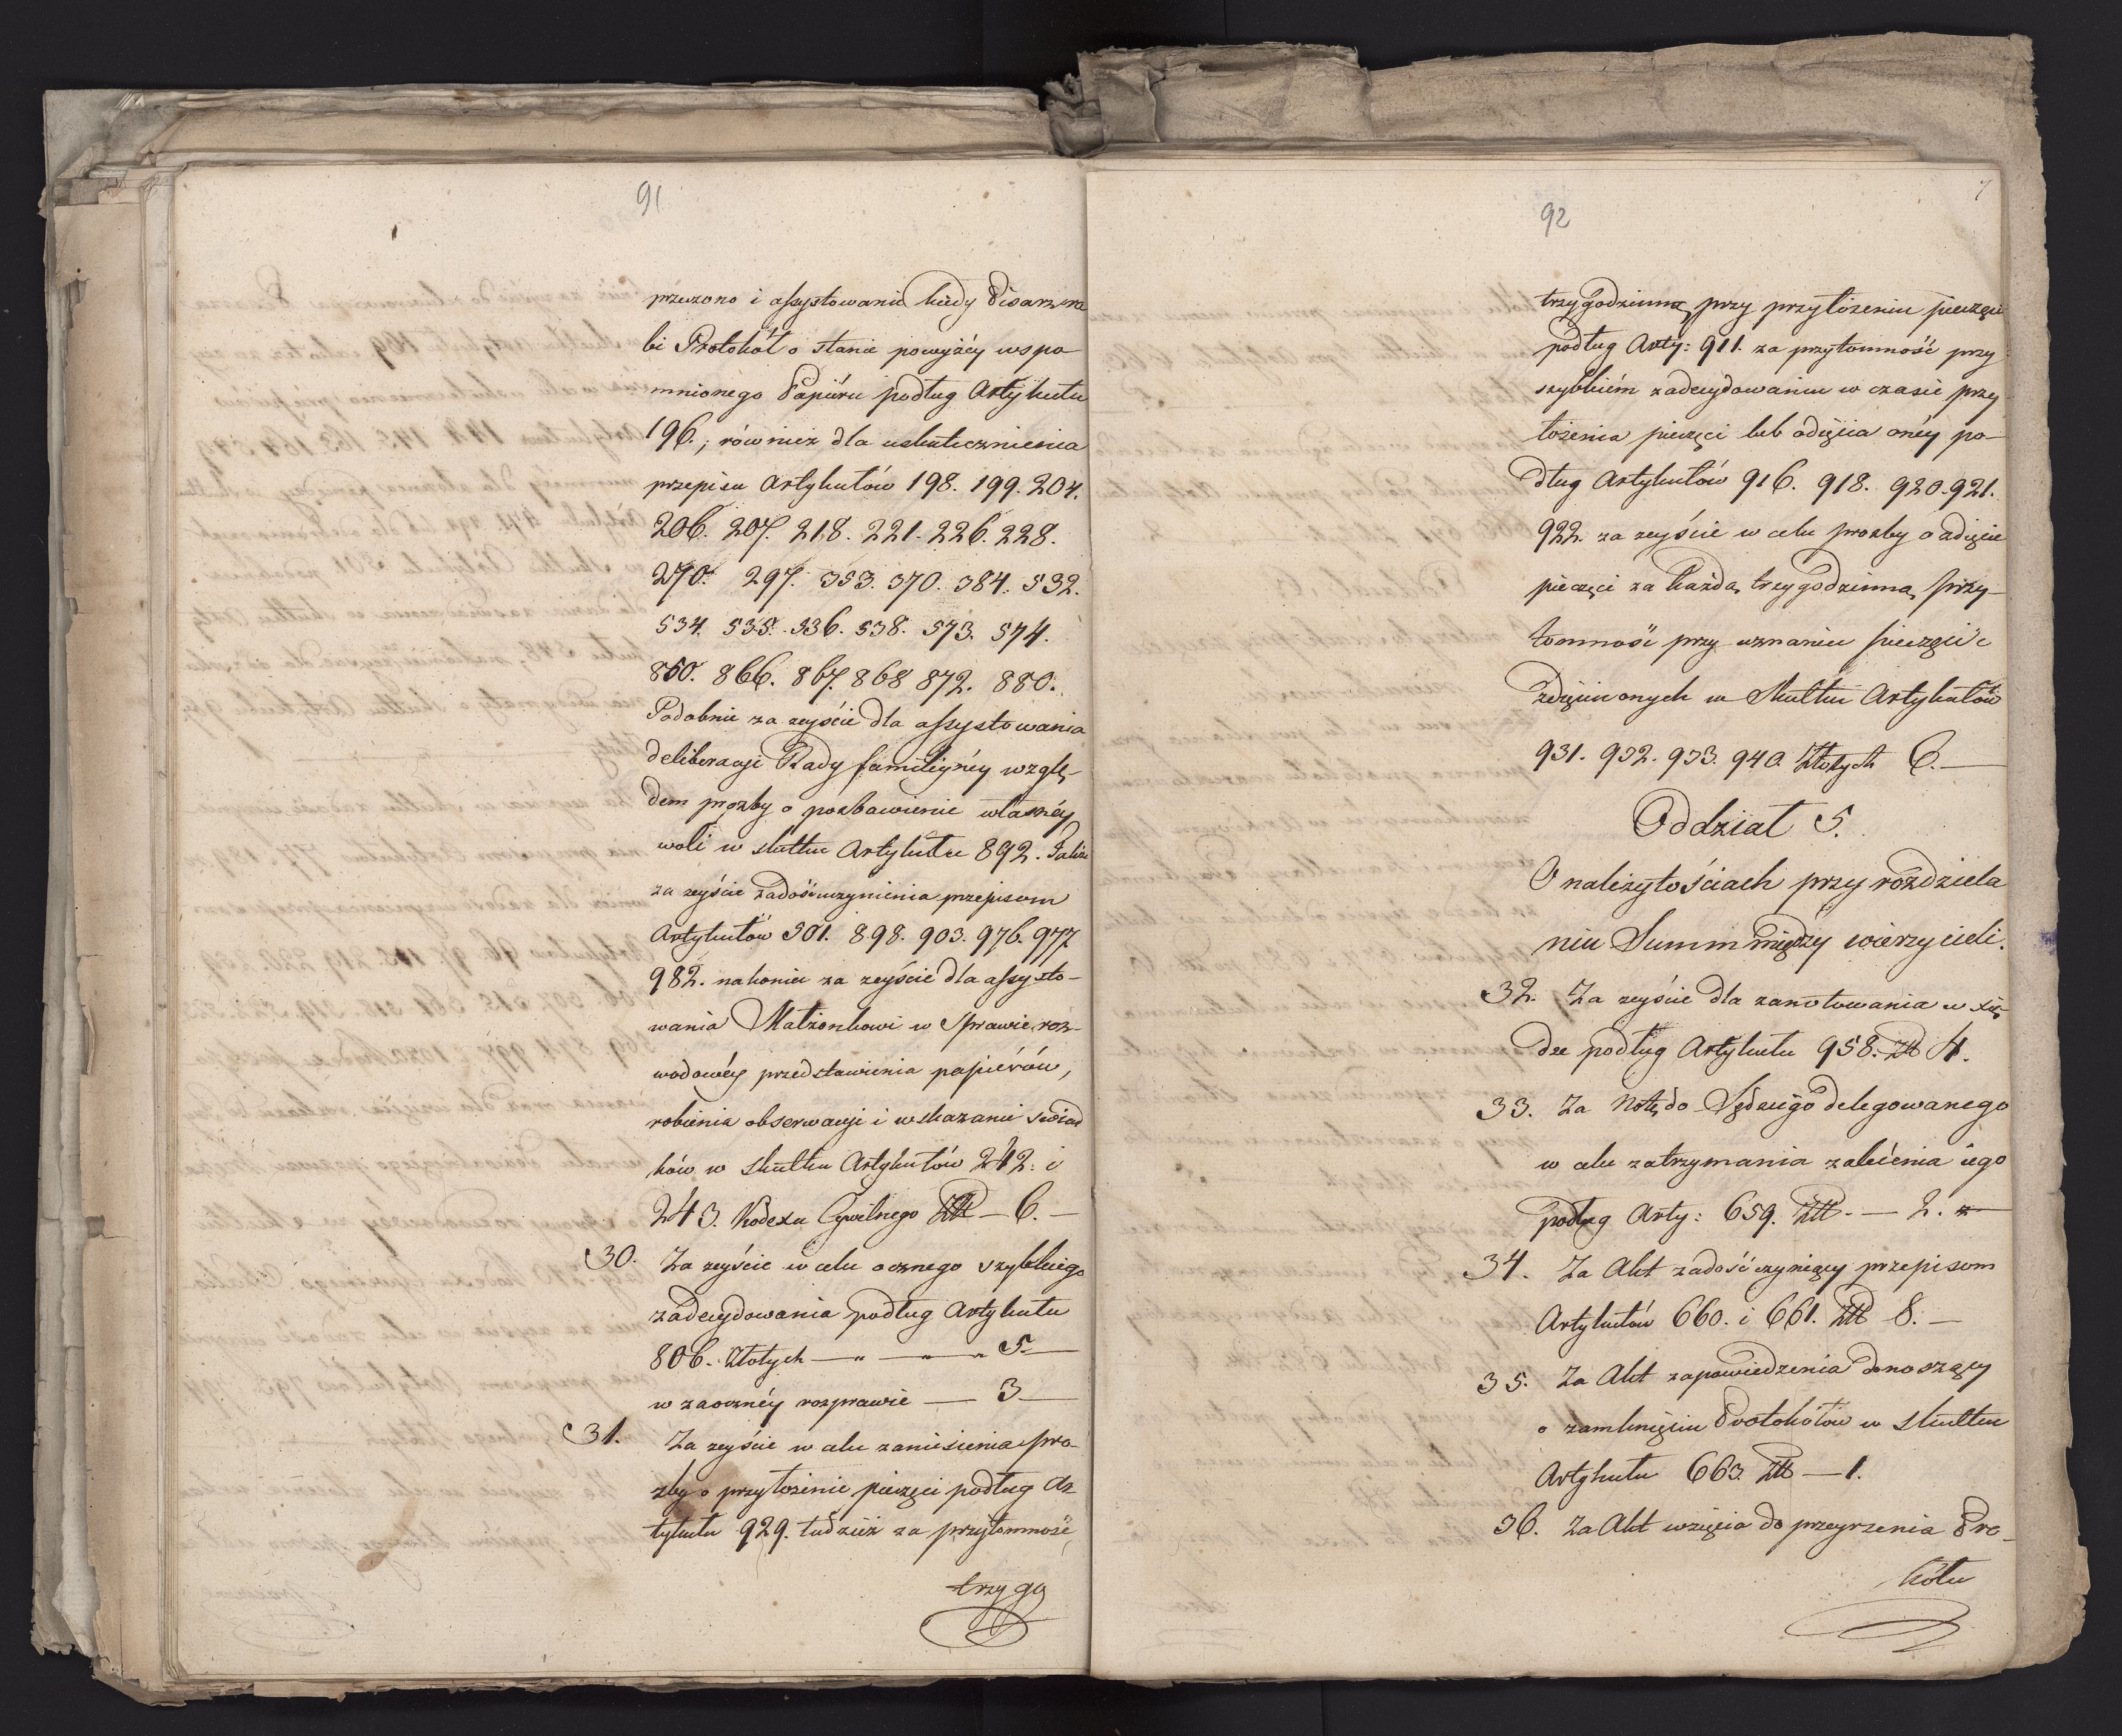 91
przeczono i assystowanie kiedy Pisarz ro
bi Protokół o stanie powyżéy wspo-
mnionego Papiéru podług Artykułu
196., również dla uskutecznienia
przepisu Artykułów 198. 199. 204.
206. 207. 218. 221. 226. 228.
270. 297. 353. 370. 384. 532.
534. 535. 536. 538. 573. 574.
860. 866. 867. 868 872. 880.
Podobnie za zeyście dla assystowania
deliberacyi Rady familiynéy wzglę-
dem prozby o pozbawienie własnéy
woli w skutku Artykułu 892. Także
za zeyście zadośćuczynienia przepisom
Artykułów 301. 898. 903. 976. 977
982. nakoniec za zeyście dla assysto-
wania Małżonkowi w Sprawie roz-
wodowéy przedstawienia papiérów,
robienia obserwacyi i wskazanie świad
ków w skutku Artykułów 242. i
243. Kodexu Cywilnego Złł — 6. —
30. Za zeyście w celu ocznego szybkiego
zadecydowania podług Artykułu
806. Złotych — „ — „ — „ 5. —
w zaocznéy rozprawie — 3 —
31. Za zeyście w celu zaniesienia pro-
zby o przyłożenie pieczęci podług Ar
tykułu 929. tudzież za przytomność
trzygo
7
92
trzygodzinną przy przyłożeniu pieczęci
podług Arty: 911. za przytomność przy
szybkiém zadecydowaniu w czasie przy
łożenia pieczęci lub odięcia onéy po-
dług Artykułów 916. 918. 920. 921.
922. za zeyście w celu prozby o odięcie
pieczęci za każdą trzygodzinną przy-
tomność przy uznaniu pieczęci i
zdięciu onych w skutku Artykułów
931. 932. 933. 940. Złotych 6. —
Oddział 5.
O należytościach przy rozdziela
niu Summ między wierzycieli.
32. Za zeyście dla zanotowania w xię-
dze podług Artykułu 958. Złł 4.
33. Za Notę do Sędziego delegowanego
w celu zatrzymania zalecenia iego
podług Arty: 659. Złł. — 2. —
34. Za Akt zadość czyniący przepisom
Artykułów 660. i 661. Złł 8. —
35. Za Akt zapowiedzenia donoszący
o zamknięciu Protokółów w skutku
Artykułu 663. Złł — 1.
36. Za Akt wzięcia do przeyrzenia Pro-
kółu